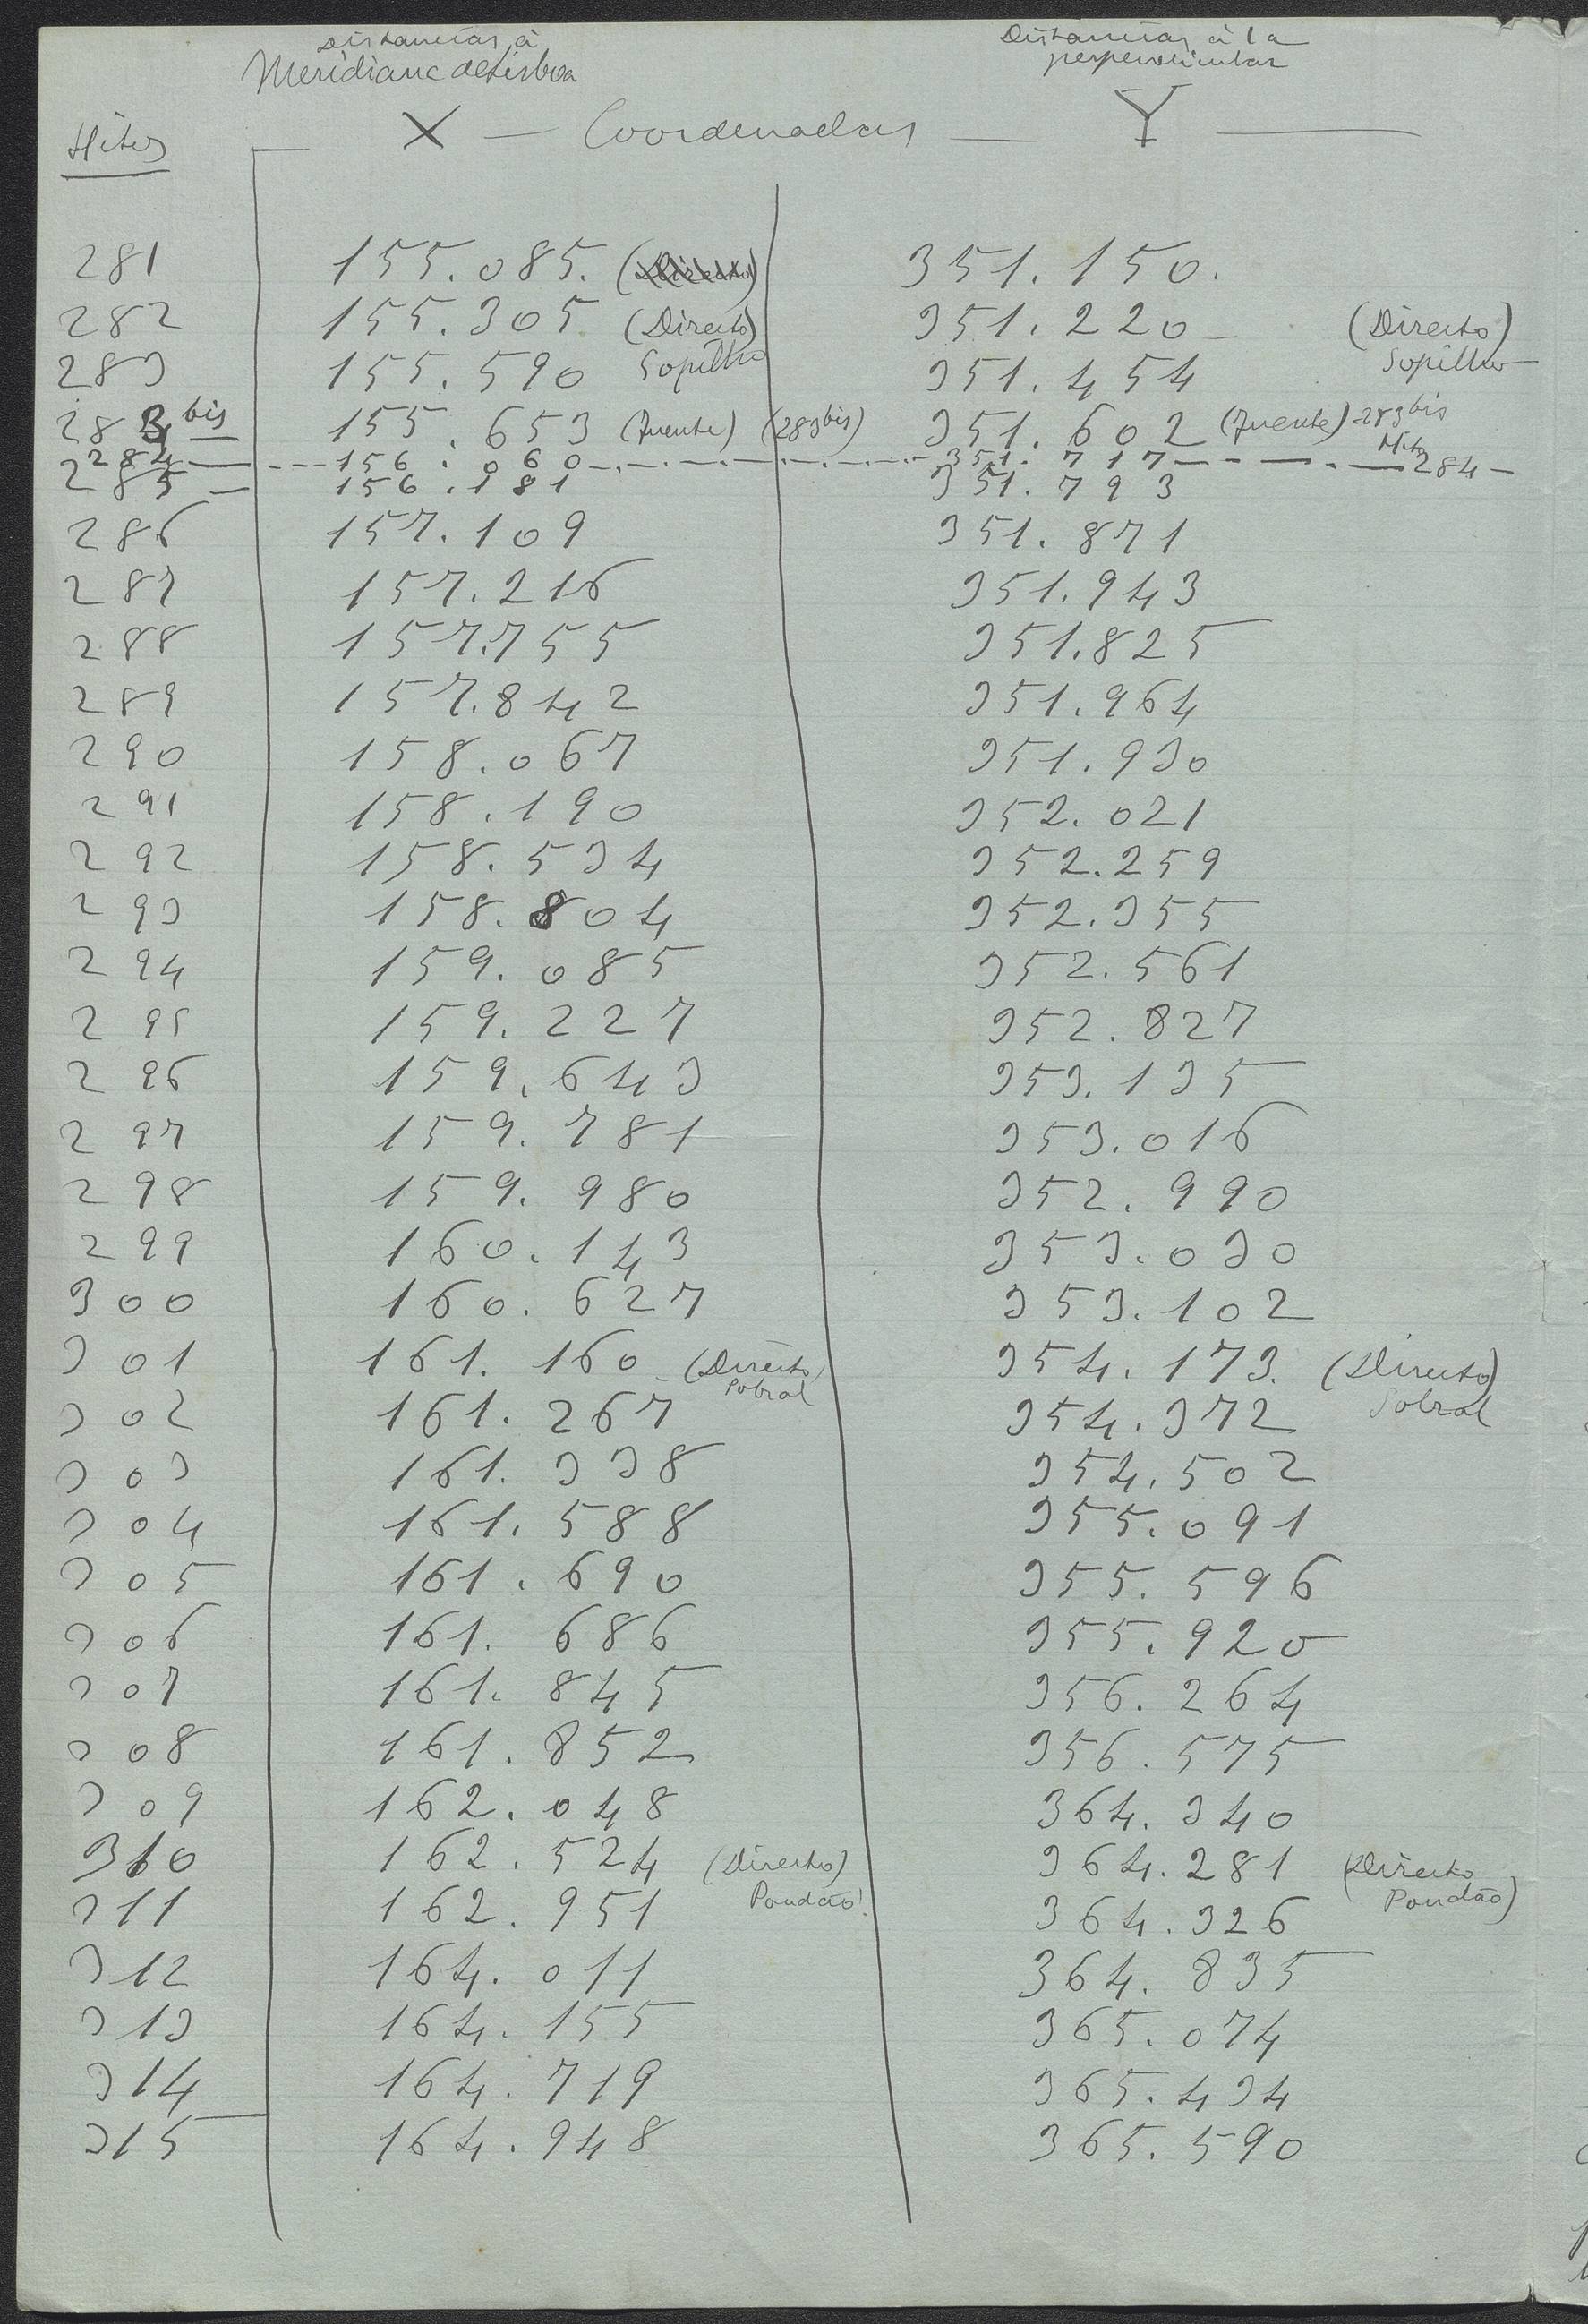 Distancias á Distancias á la
Meridiana de Lisboa perpendicular
Hitos X — Coordenadas — Y —
281 155.085. (Directo) 351.150.
282 155.305 (Directo) 351.220 (Directo)
283 155.590 Sopilho 351.454 Sopilho
283 bis 155.653 (Fuente) (283 bis) 351.602 (Fuente) 283 bis
284 156.060 351.717 Hito 284
285 156.181 351.793
286 157.109 351.871
287 157.216 351.943
288 157.755 351.825
289 157.842 351.964
290 158.067 351.930
291 158.190 352.021
292 158.534 352.259
293 158.804 352.355
294 159.085 352.561
295 159.227 352.827
296 159.643 353.135
297 159.781 353.016
298 159.980 352.990
299 160.143 353.030
300 160.627 353.102
301 161.160 (Directo) 354.173. (Directo)
Sobral Sobral
302 161.267 354.372
303 161.338 354.502
304 161.588 355.091
305 161.690 355.596
306 161.686 355.920
307 161.845 356.264
308 161.852 356.575
309 162.048 364.340
310 162.524 (Directo) 364.281 (Directo
311 162.951 Poudão 364.326 Poudão)
312 164.011 364.835
313 164.155 365.074
314 164.719 365.434
315 164.948 365.590